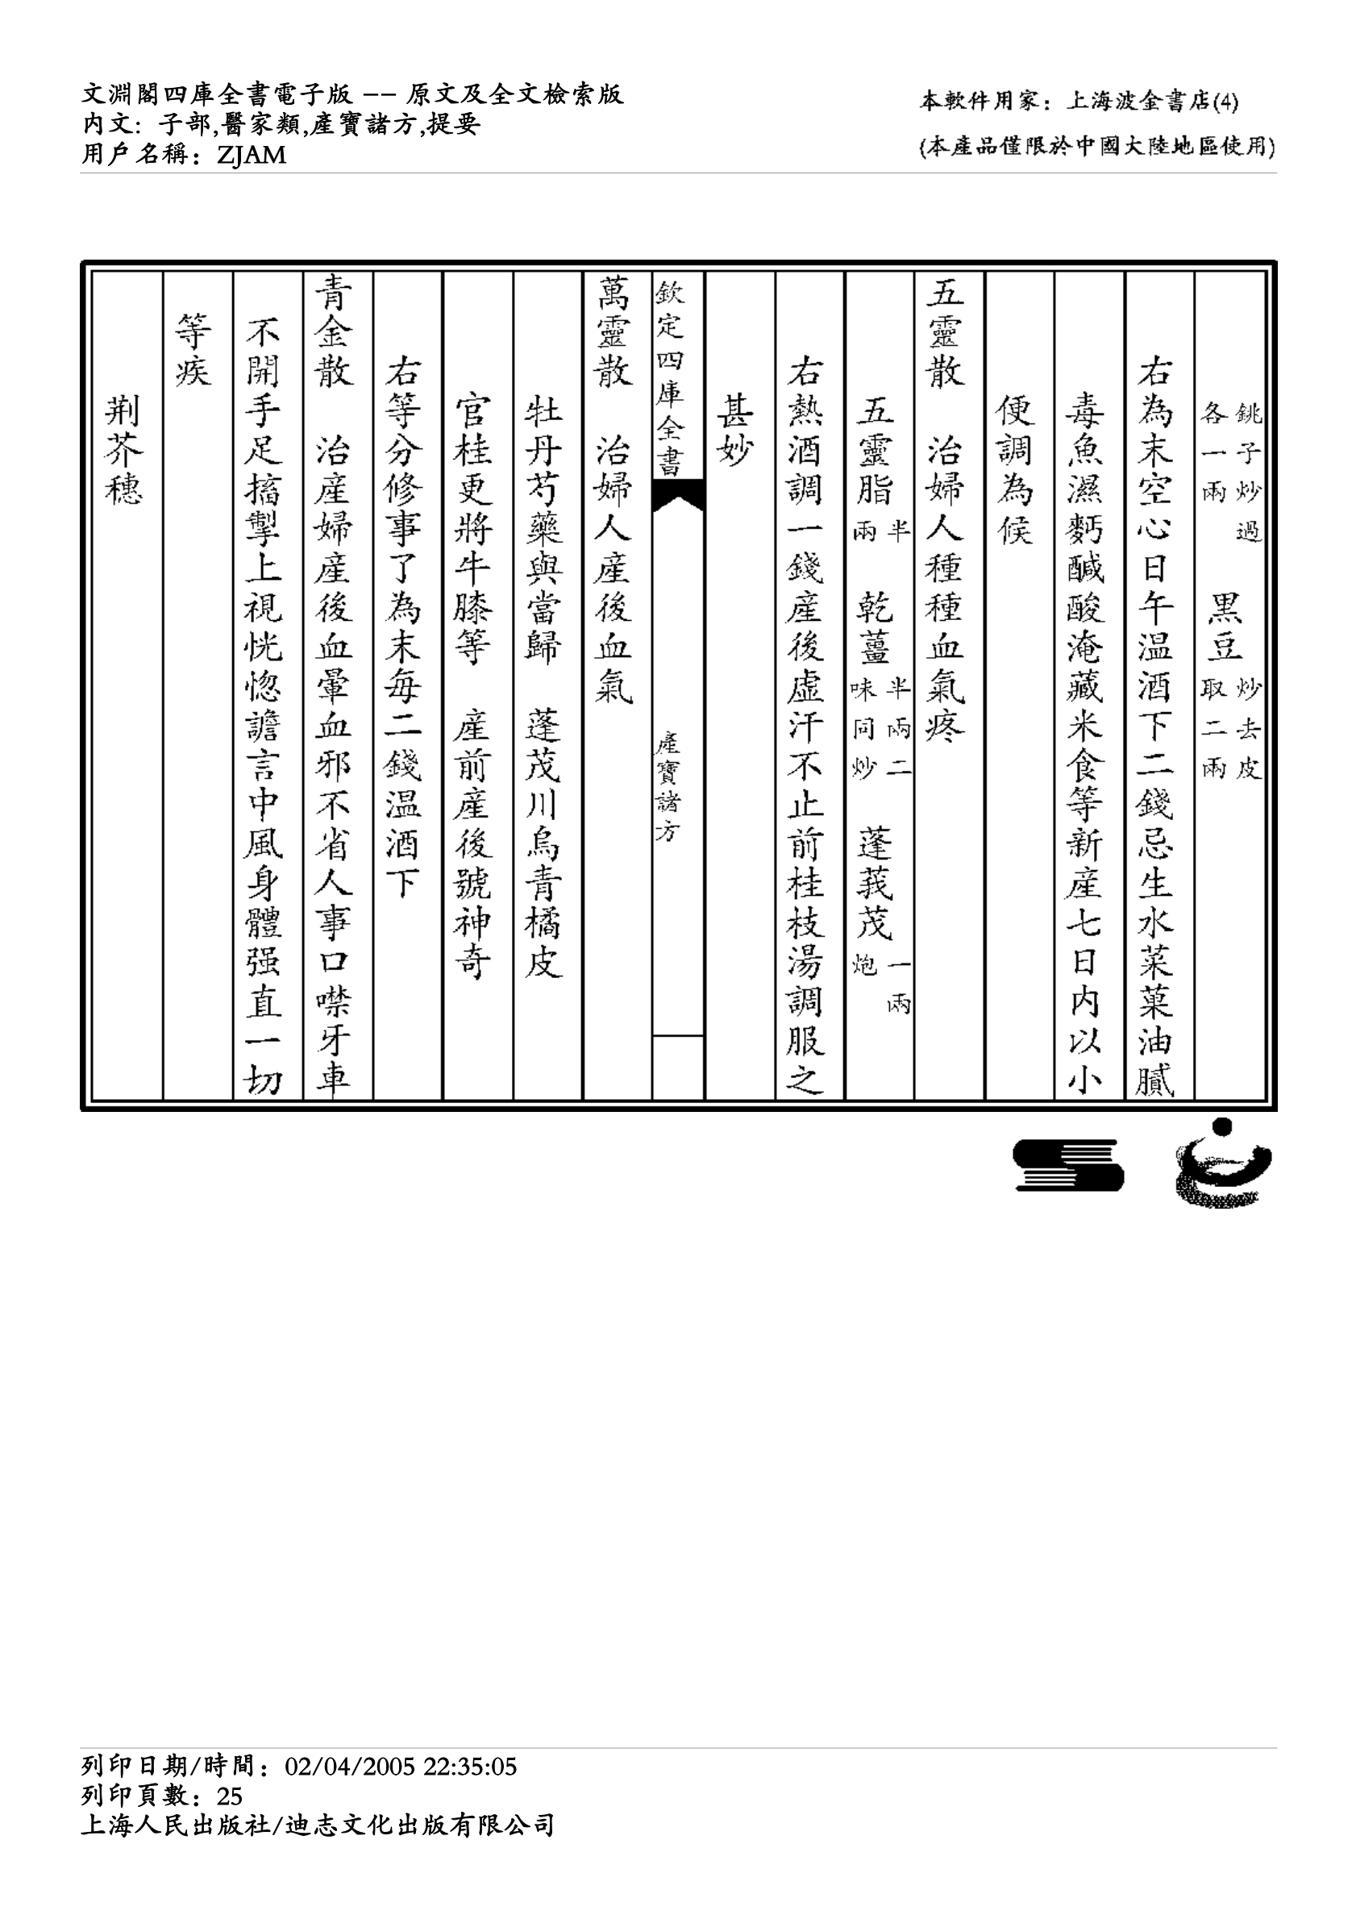 文淵閣四庫全書電子版 -- 原文及全文檢索版
内文：子部,醫家類,產寶諸方,提要
用戶名稱：ZJAM
本軟件用家：上海波金書店(4)
(本產品僅限於中國大陸地區使用)
銚子炒過各一兩　黑豆炒去皮取二兩
右為末空心日午温酒下二錢忌生水菜菓油膩
毒魚濕麪醎酸淹藏米食等新産七日内以小
便調為候
五靈散　治婦人種種血氣疼
五靈脂半兩　乾薑半兩二味同炒　蓬莪茂一兩炮
右熱酒調一錢産後虛汗不止前桂枝湯調服之
甚妙
欽定四庫全書　產寶諸方
萬靈散　治婦人産後血氣
牡丹芍藥與當歸　蓬茂川烏青橘皮
官桂更將牛膝等　産前産後號神奇
右等分修事了為末每二錢温酒下
青金散　治産婦産後血暈血邪不省人事口噤牙車
不開手足搐掣上視恍惚譫言中風身體强直一切
等疾
荆芥穗
列印日期/時間：02/04/2005 22:35:05
列印頁數：25
上海人民出版社/迪志文化出版有限公司